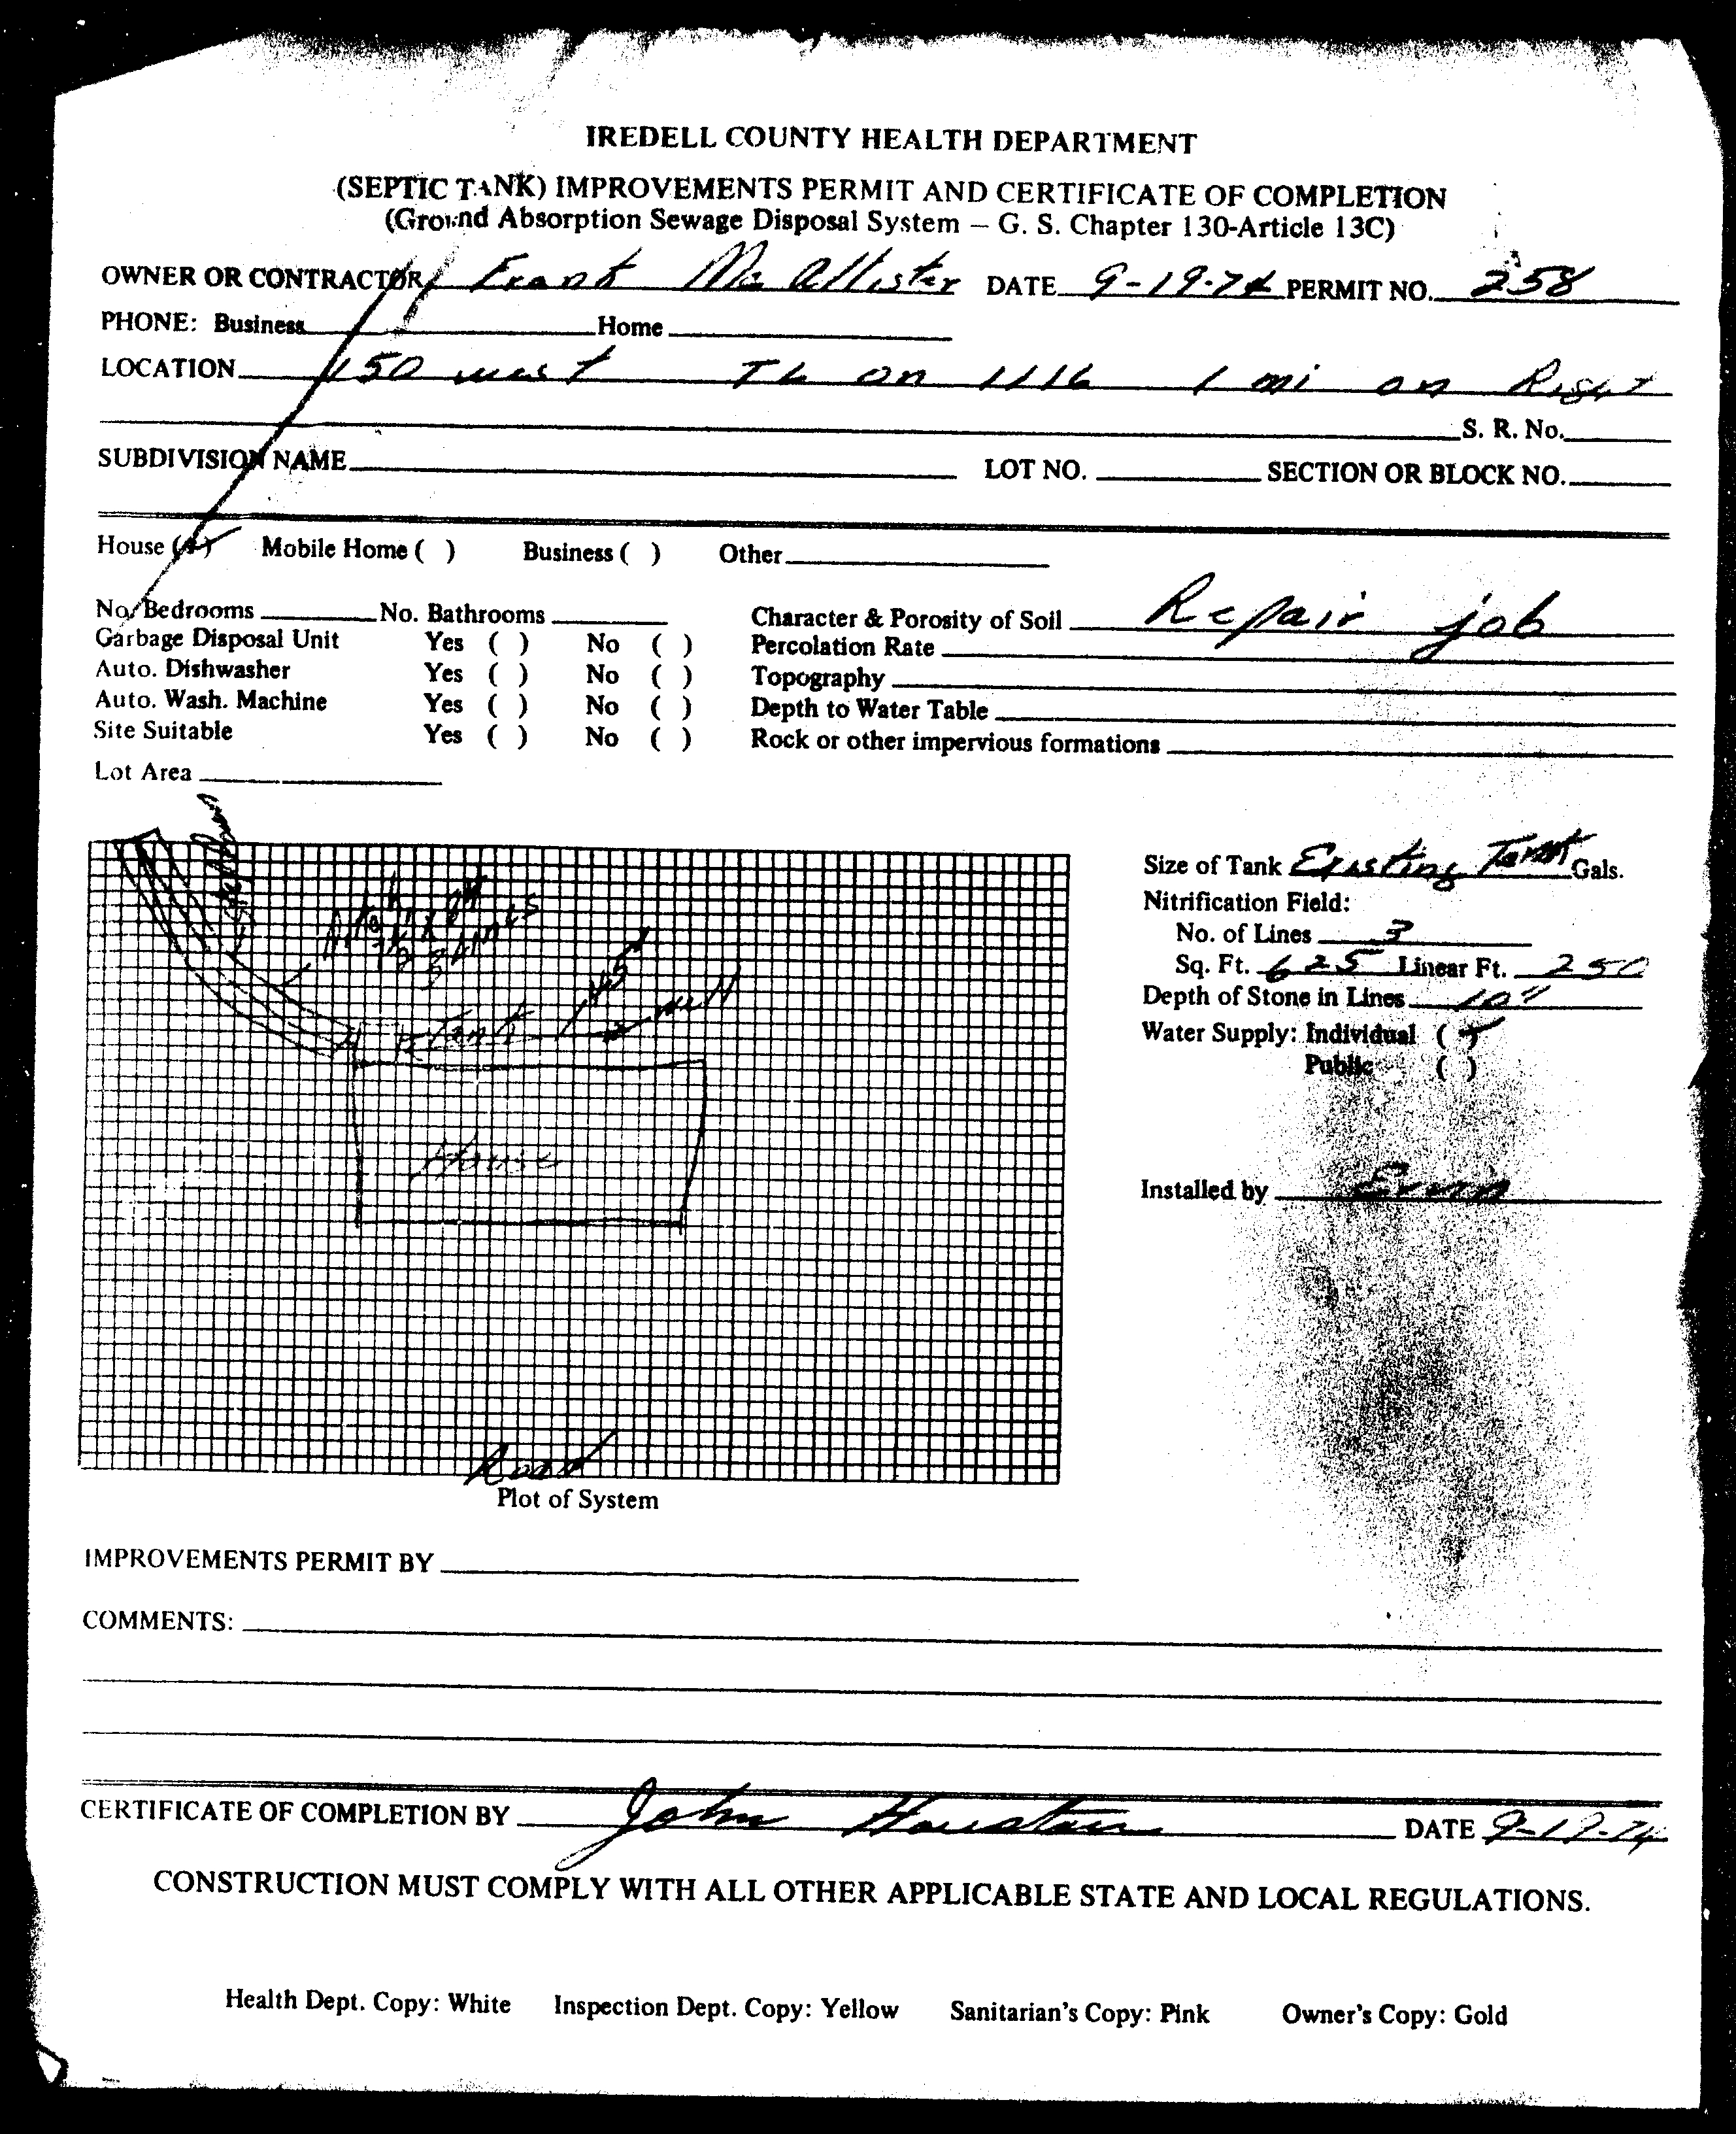 IREDELL COUNTY HEALTH DEPARTMENT
(SEPTIC TANK) IMPROVEMENTS PERMIT AND CERTIFICATE OF COMPLETION
(Ground Absorption Sewage Disposal System – G. S. Chapter 130-Article 13C)
OWNER OR CONTRACTOR Frank McAllister DATE 9-19-74 PERMIT NO. 258
PHONE: Business Home
LOCATION 150 west TL on 1116 1 mi on Right
S. R. No.
SUBDIVISION NAME LOT NO. SECTION OR BLOCK NO.
House (✓) Mobile Home ( ) Business ( ) Other
No. Bedrooms No. Bathrooms Character & Porosity of Soil Repair job
Garbage Disposal Unit Yes ( ) No ( ) Percolation Rate
Auto. Dishwasher Yes ( ) No ( ) Topography
Auto. Wash. Machine Yes ( ) No ( ) Depth to Water Table
Site Suitable Yes ( ) No ( ) Rock or other impervious formations
Lot Area
Size of Tank Existing Tank Gals.
Nitrification Field:
No. of Lines 3
Sq. Ft. 625 Linear Ft. 250
Depth of Stone in Lines 10"
Water Supply: Individual (✓)
Public ( )
3 Lines
Tank
well
House
Installed by Ervin
Road
Plot of System
IMPROVEMENTS PERMIT BY
COMMENTS:
CERTIFICATE OF COMPLETION BY John Houston DATE 9-19-74
CONSTRUCTION MUST COMPLY WITH ALL OTHER APPLICABLE STATE AND LOCAL REGULATIONS.
Health Dept. Copy: White Inspection Dept. Copy: Yellow Sanitarian's Copy: Pink Owner's Copy: Gold